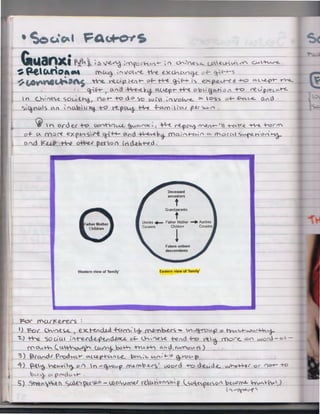 • Social Factors
Guanxi is very important in Chinese collectivism culture.
may involve the exchange of gifts
the recipient of the gift is expected to accept the
gift, and thereby accept the obligation to reciprocate
In Chinese society, not to do so will involve loss of face and
signals an inability to repay the
In order to continue guanxi, the repayment take the form
of a more expensive gift and thereby maintain moral superiority
and keep the other person indebted.
Deceased ancestors
Grandparents
Father Mother
Children
Uncles
Cousins
Father Mother
Children
Aunties
Cousins
Future unborn
descendants
Western view of 'family'
Eastern view of 'family'
For marketers :
1) For Chinese, extended family members = in-group = trustworthy
2) The social interdependence of Chinese tend to rely more on word-of-
mouth (although carry both truth and rumours)
3) Brand/Product acceptance, basis with group.
4) Rely heavily on in-group members' word to decide whether or not to
buy a product
5) Strengthen salesperson-consumer relationship (salesperson become trustful)